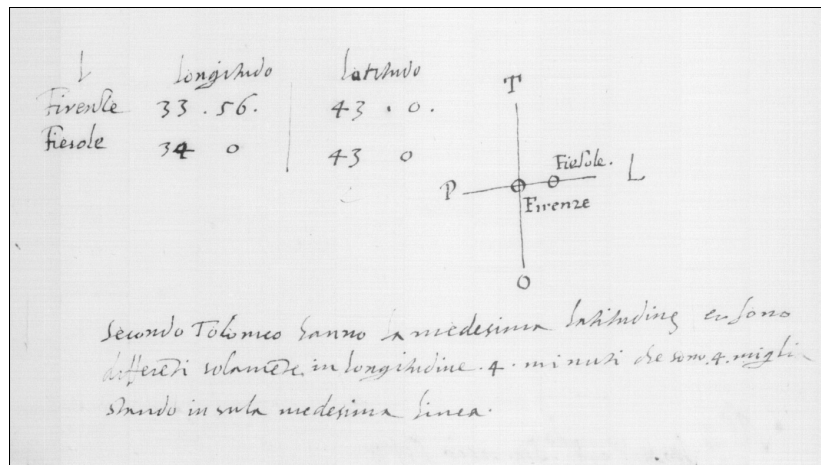 L longitudo latitudo
Firenze 33 . 56 . 43 . 0 .
Fiesole 34 0 43 0
T
Fiesole.
P L
Firenze
O
Secondo Tolomeo hanno la medesima latitudine et sono
differēti solamēte in longitudine . 4 . minuti che sono . 4 . migli
stando in sula medesima linea .